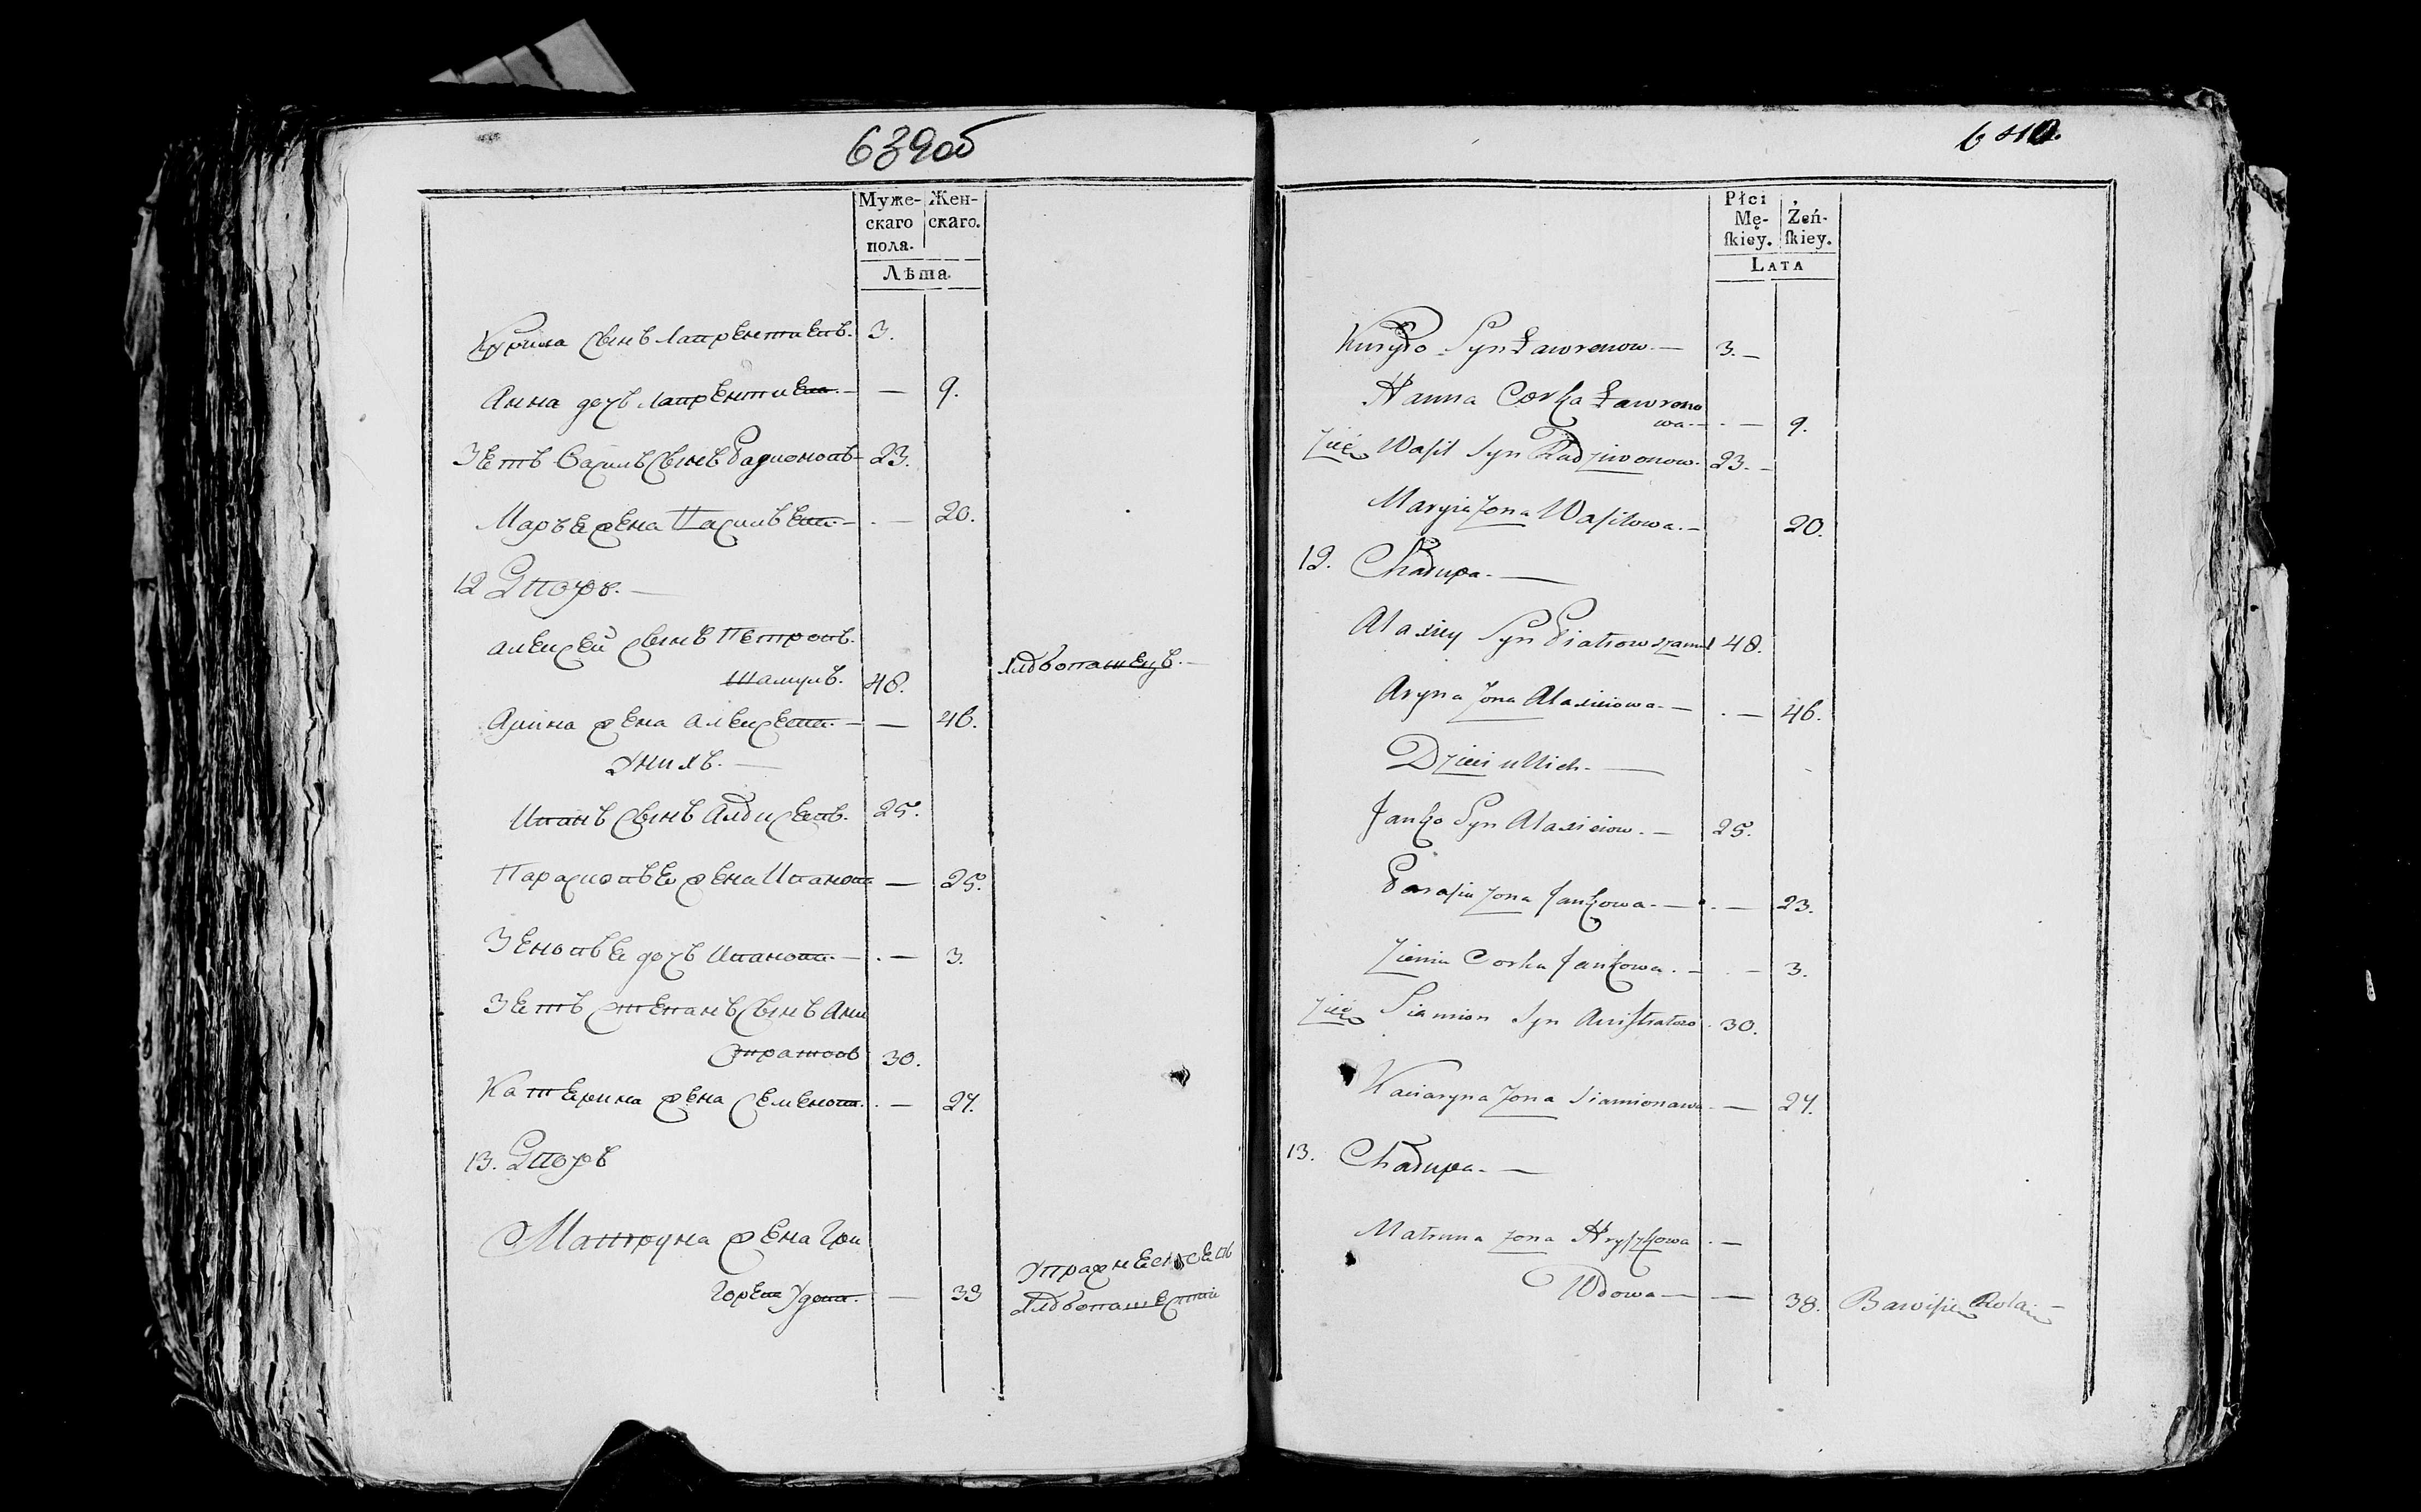 639об
Муже-
скаго
пола.
Жен-
скаго.
Лѣта.
Курила сынъ Лаврентиевъ. 3.
Анна дочь Лаврентиева. — — 9.
Зеть Василь сынъ Радионовъ 23.
Марья жена Васильева — . — 20.
12 Дворъ. —
Алексей сынъ Петровъ
Шамулъ. 48. Хлѣбопашецъ. —
Арина жена Алексеева. — — 46.
У нихъ. —
Иванъ сынъ Алексеевъ. 25.
Парасковья жена Иванова — 25.
Зеновья дочь Иванова. — . — 3.
Зеть Степанъ сынъ Ани
стратовъ 30.
Катерина жена Семенова. . — 27.
13. Дворъ
Матруна жена Гри
горева удова. — — 38 Упражнеется въ
хлѣбопашестве
640.
Płci
Mę-
ſkiey.
Żeń-
ſkiey.
LATA
Kuryło Syn Ławronow — 3. —
Hanna Corka Ławrono
wa. — . — 9.
Zięć Waſil Syn Radziwonow. 23. —
Maryia Zona Waſilowa. — 20.
12. Chałupa. —
Alaxiey Syn Piatrow Szamul 48.
Aryna Zona Alaxieiowa. — . — 46.
Dzieci u Nich. —
Janko Syn Alaxieiow. — 25.
Paraſia Zona Jankowa. — . — 23.
Zienia Corka Jankowa. — . — 3.
Zięć Siamion Syn Aniſtratow . 30.
Kaciaryna Zona Siamionawa — 27.
13. Chałupa. —
Matruna Zona Hryſzkowa . —
Wdowa — — 38. Bawiſię Rolą —